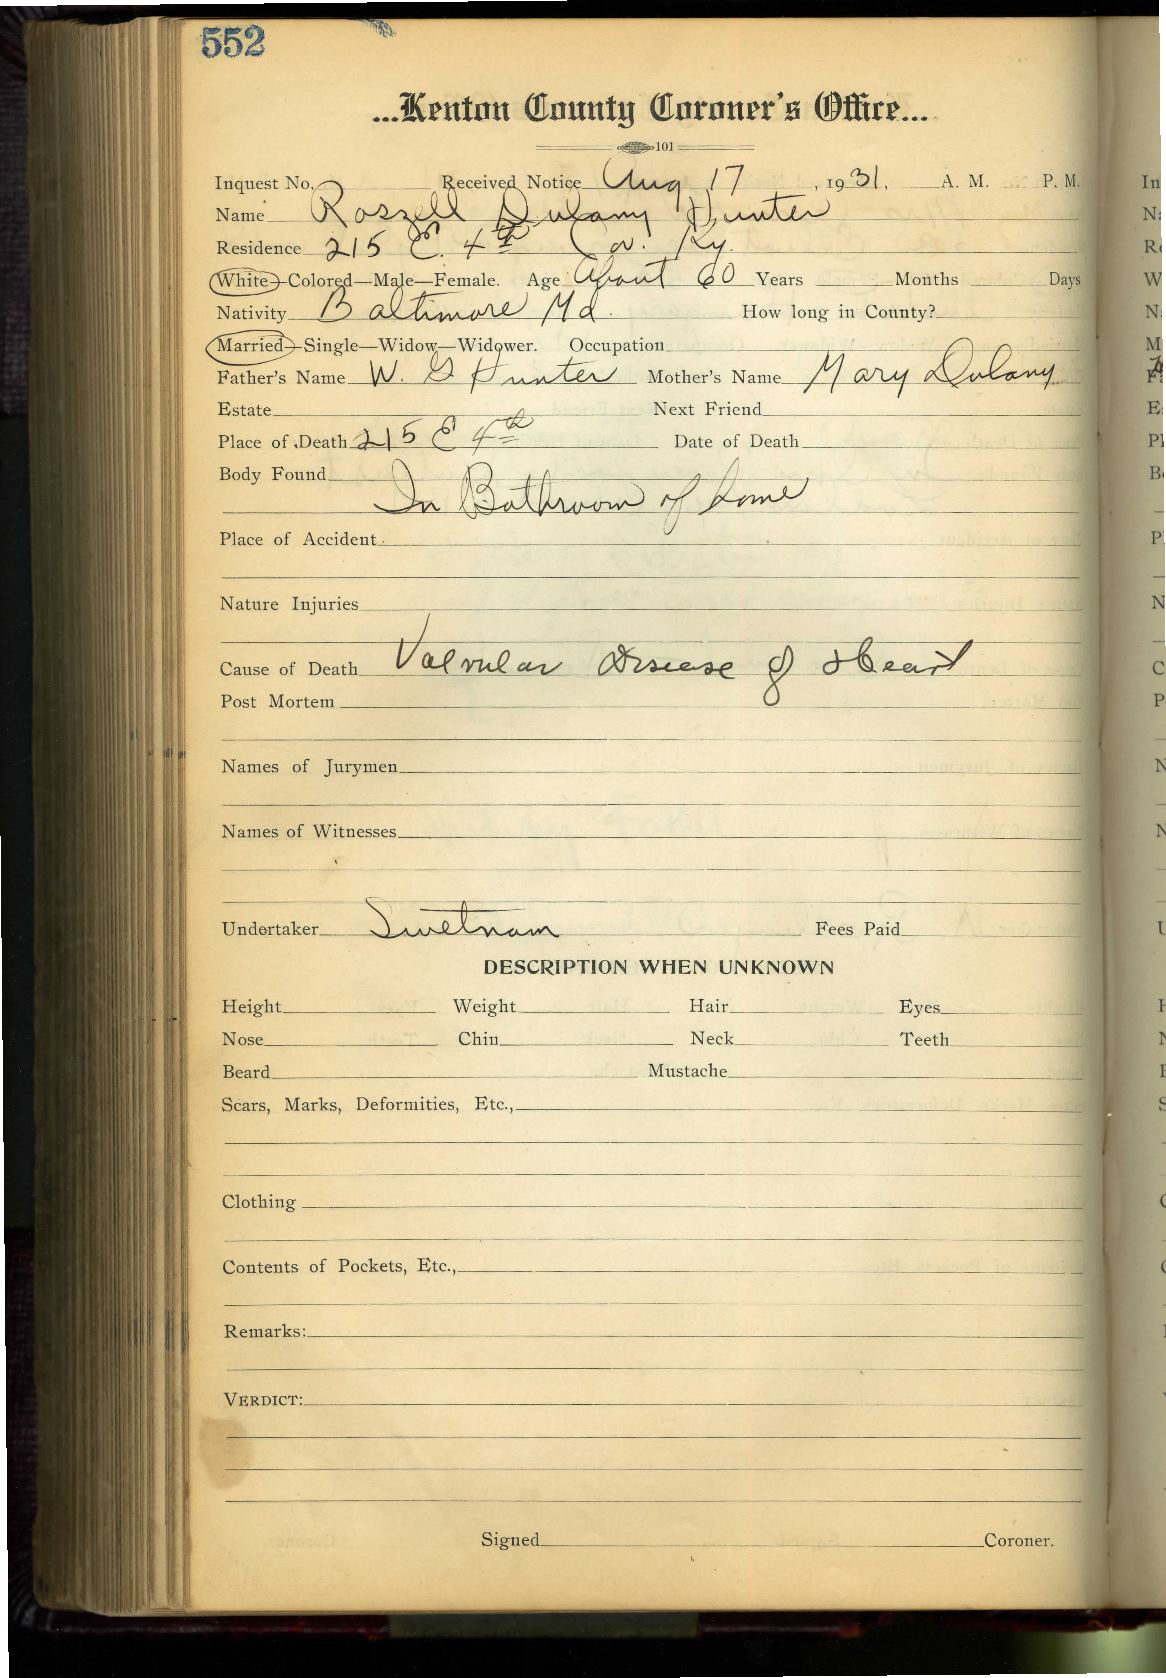 552
...Kenton County Coroner's Office...
101
Inquest No. Received Notice Aug 17, 1931, A. M. P. M.
Name Roszell Dulany Hunter
Residence 215 E. 4th Cov. Ky.
White—Colored—Male—Female. Age About 60 Years Months Days
Nativity Baltimore Md. How long in County?
Married—Single—Widow—Widower. Occupation
Father's Name W. G Hunter Mother's Name Mary Dulany
Estate Next Friend
Place of Death 215 E 4th Date of Death
Body Found
In Bathroom of home
Place of Accident
Nature Injuries
Cause of Death Valvular Disease of Heart
Post Mortem
Names of Jurymen
Names of Witnesses
Undertaker Swetnam Fees Paid
DESCRIPTION WHEN UNKNOWN
Height Weight Hair Eyes
Nose Chin Neck Teeth
Beard Mustache
Scars, Marks, Deformities, Etc.,
Clothing
Contents of Pockets, Etc.,
Remarks:
VERDICT:
Signed Coroner.